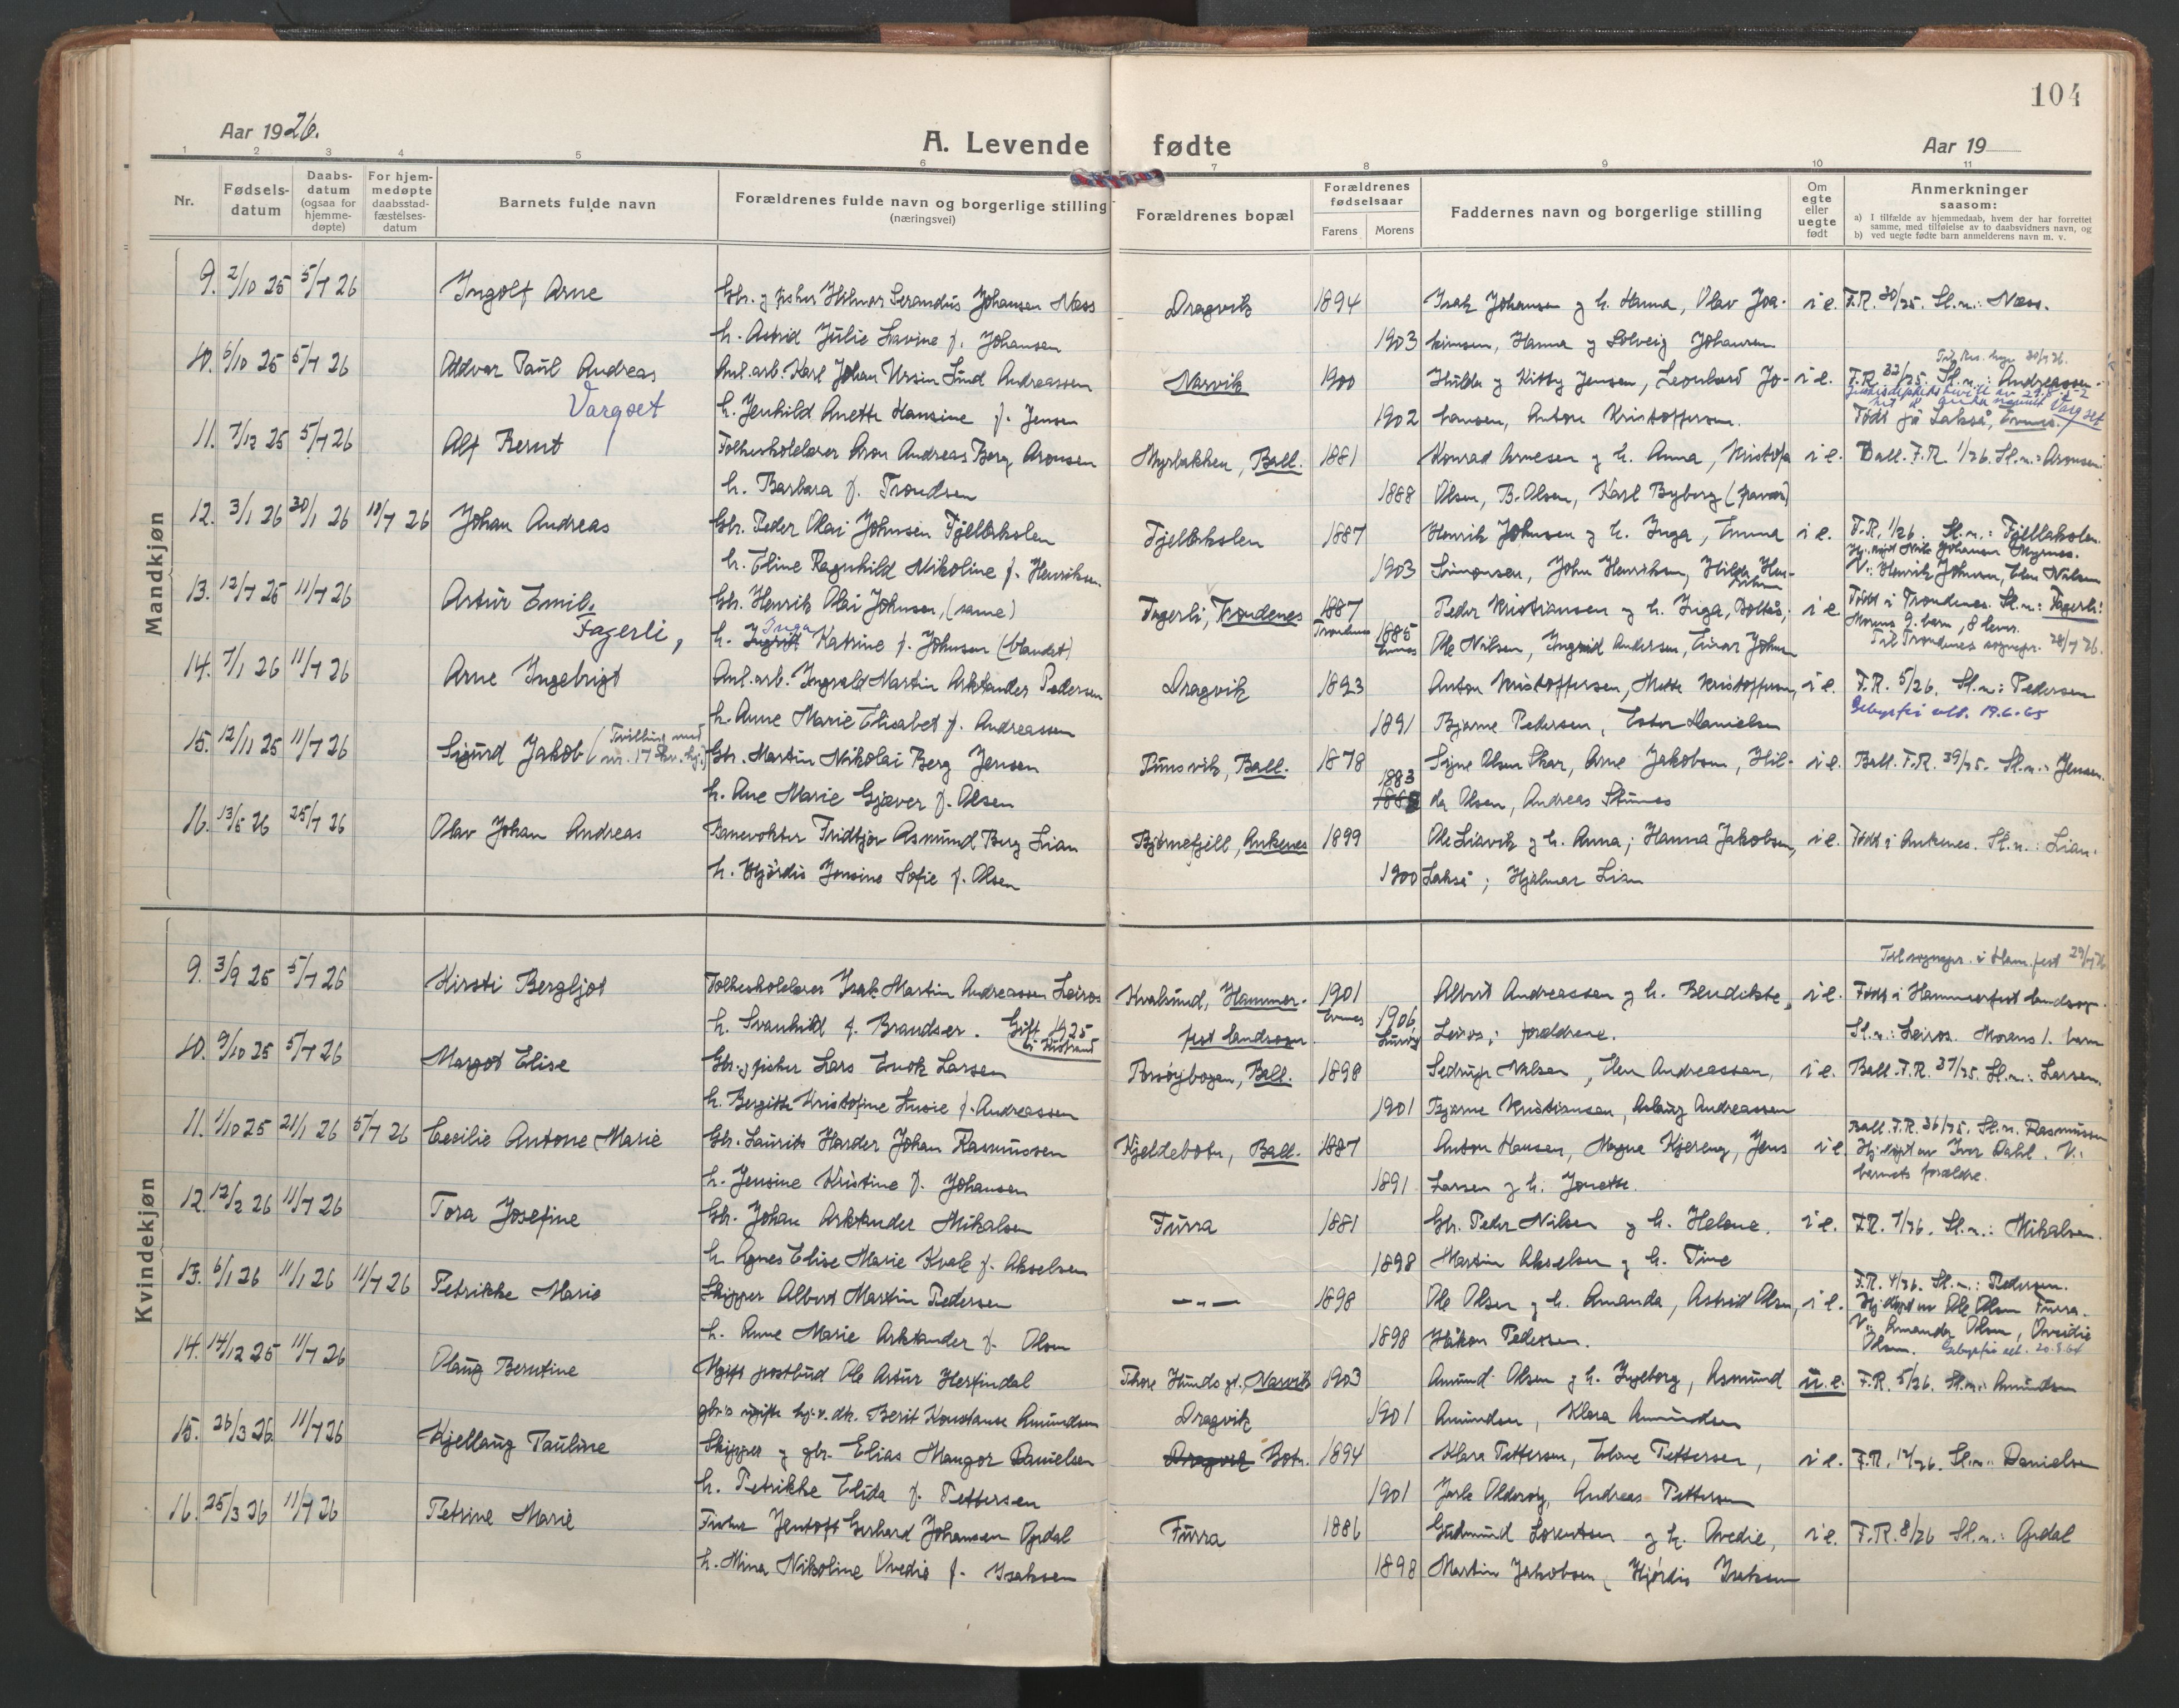 104
Aar 1926.
A. Levende fødte
Aar 19
1 2 3 4 5 6 7 8 9 10 11
Nr.
Fødsels-datum
Daabs-datum (ogsaa for hjemme-døpte)
For hjem-medøpte daabsstad-fæstelses-datum
Barnets fulde navn
Forældrenes fulde navn og borgerlige stilling (næringsvei)
Forældrenes bopæl
Forældrenes fødselsaar
Farens Morens
Faddernes navn og borgerlige stilling
Om egte eller uegte født
Anmerkninger saasom:
a) I tilfælde av hjemmedaab, hvem der har forrettet samme, med tilføielse av to daabsvidners navn, og
b) ved uegte fødte barn anmelderens navn m. v.
Mandkjøn
9. 2/10 25 5/4 26 Ingolf Arne Gbr. og fisker Hilmar Serandius Johansen Næss Dragvik 1894 Isak Johansen og h. Hanna, Olav Joa- i e. F.R. 30/25. Sl.n.: Næss.
h. Astrid Julie Lavine f. Johansen 1903 kimsen, Hanna og Solveig Johansen
10. 6/10 25 5/4 26 Oddvar Paul Andreas Anl.arb. Karl Johan Ursin Lund Andreassen Narvik 1900 Hulda og Kitty Jensen, Leonhard Jo- i e. F.R. 32/25. Sl.n.: Andreassen.
Vargset h. Jenhild Anette Hansine f. Jensen 1902 hansen, Anton Kristoffersen. Født på Lakså, Evenes. Vargset
11. 7/12 25 5/4 26 Alf Bernt Folkeskolelærer Aron Andreas Berg Aronsen Myrbakken, Ball. 1881 Konrad Arnesen og h. Anna, Kristofa i e. Ball. F.R. 1/26. Sl.n.: Aronsen.
h. Barbara f. Trondsen 1888 Olsen, B. Olsen, Karl Byberg (farvar)
12. 3/1 26 30/1 26 18/4 26 Johan Andreas Gbr. Peder Olai Johnsen Fjellakslen Fjellakslen 1887 Henrik Johnsen og h. Inga, Emma i e. F.R. 1/26. Sl.n.: Fjellakslen.
h. Eline Ragnhild Nikoline f. Henriksen 1903 Simonsen, John Henriksen, Hilda V.: Henrik Johnsen, Elen Nilsen
13. 12/4 25 11/4 26 Artur Emil. Gbr. Henrik Olai Johnsen, (same) Fagerli, Trondenes 1887 Peder Kristiansen og h. Inga, Boltås; i e. Født i Trondenes. Sl.n.: Fagerli.
Fagerli, h. Inga Katrine f. Johnsen (blandet) Trondenes 1885 Evenes Ole Nilsen, Ingrid Andersen, Einar Johns. Morens 9. barn, 8 lever.
Til Trondenes sognepr. 28/4 26.
14. 7/1 26 11/4 26 Arne Ingebrigt Anl.arb. Ingvald Martin Arktander Pedersen Dragvik 1893 Anton Kristoffersen, Mette Kristoffersen, i e. F.R. 5/26. Sl.n.: Pedersen
h. Anne Marie Elisabet f. Andreassen 1891 Bjarne Pedersen, Ester Danielsen Gebyrfri att. 19.6.65
15. 12/11 25 11/4 26 Sigurd Jakob (Tvilling med nr. 17 kv. kj.) Gbr. Martin Nikolai Berg Jensen Bunsvik, Ball. 1878 Signe Olsen Skar, Arne Jakobsen, Hil- i e. Ball. F.R. 39/25. Sl.n.: Jensen.
h. Ane Marie Gjæver f. Olsen 1883 da Olsen, Andreas Stunes
16. 13/5 26 25/4 26 Olav Johan Andreas Banevokter Fridtjov Asmund Berg Lian Bjørnefjell, Ankenes 1899 Ole Liavik og h. Anna; Hanna Jakobsen, i e. Født i Ankenes. Sl.n.: Lian.
h. Hjørdis Jensine Sofie f. Olsen 1900 Lakså; Hjalmar Lian
Kvindekjøn
Til sognepr. i Hammerfest 29/4 26
9. 3/9 25 5/4 26 Kirsti Bergljot Folkeskolelærer Isak Martin Andreassen Leiros Kvalsund, Hammer- 1901 Evenes Albert Andreassen og h. Bendikte, i e. Født i Hammerfest landsogn.
h. Svanhild f. Brandser. Gift 1925 fest landsogn. 1906 Leiros; foreldrene. Sl.n.: Leiros. Morens 1. barn
10. 9/10 25 5/4 26 Margot Elise Gbr. og fisker Lars Enok Larsen Forsøybogen, Ball. 1898 Sedrup Nilsen, Elen Andreassen, i e. Ball. F.R. 37/25. Sl.n.: Larsen.
h. Bergitte Kristofine Lusie f. Andreassen 1901 Bjarne Kristiansen, Aslaug Andreassen
11. 1/10 25 21/1 26 5/4 26 Cecilie Antone Marie Gbr. Laurits Harder Johan Rasmussen Kjeldebotn, Ball. 1887 Anton Hansen, Magna Kjereng, Jens i e. Ball. F.R. 36/25. Sl.n. Rasmussen
Hj.døpt av Iver Dahl. V.:
h. Jensine Kristine f. Johansen 1891 Larsen og h. Jonette. barnets forældre.
12. 12/2 26 11/4 26 Tora Josefine Gbr. Johan Arktander Mikalsen Furra 1881 Gbr. Peder Nilsen og h. Helene. i e. F.R. 7/26. Sl.n.: Mikalsen.
h. Agnes Elise Marie Kvale f. Akselsen 1898 Martin Akselsen og h. Tine
13. 6/1 26 11/1 26 11/4 26 Petrikke Marie Skipper Albert Martin Pedersen —„— 1898 Ole Olsen og h. Amanda, Astrid Olsen, i e. F.R. 4/26. Sl.n.: Pedersen.
Hj.døpt av Ole Olsen Furra.
h. Anne Marie Arktander f. Olsen 1898 Håkon Pedersen. V.: Amanda Olsen, Ovedie
Olsen. Gebyrfri att. 20.5.64
14. 14/12 25 11/4 26 Olaug Berntine Ugift postbud Ole Artur Herfindal Thore Hunds gt., Narvik 1903 Amund Olsen og h. Ingeborg, Asmund u.e. F.R. 5/26. Sl.n.: Amundsen
gbr.s ugifte hj.v. dtr. Berit Konstanse Amundsen Dragvik 1901 Amundsen, Klara Amundsen
15. 26/3 26 11/4 26 Kjellaug Pauline Skipper og gbr. Elias Mangor Danielsen Dragvik Botn. 1894 Klara Pettersen, Elone Pettersen, i e. F.R. 12/26. Sl.n.: Danielsen
h. Petrikke Elida f. Pettersen 1901 Jarle Oldervig, Andreas Pettersen
16. 25/3 26 11/4 26 Petrine Marie Fisker Jentoft Gerhard Johansen Opdal Furra 1886 Gudmund Lorentsen og h. Ovedie, i e. F.R. 8/26 Sl.n.: Opdal
h. Mina Nikoline Ovedie f. Isaksen 1898 Martin Jakobsen, Hjørdis Isaksen